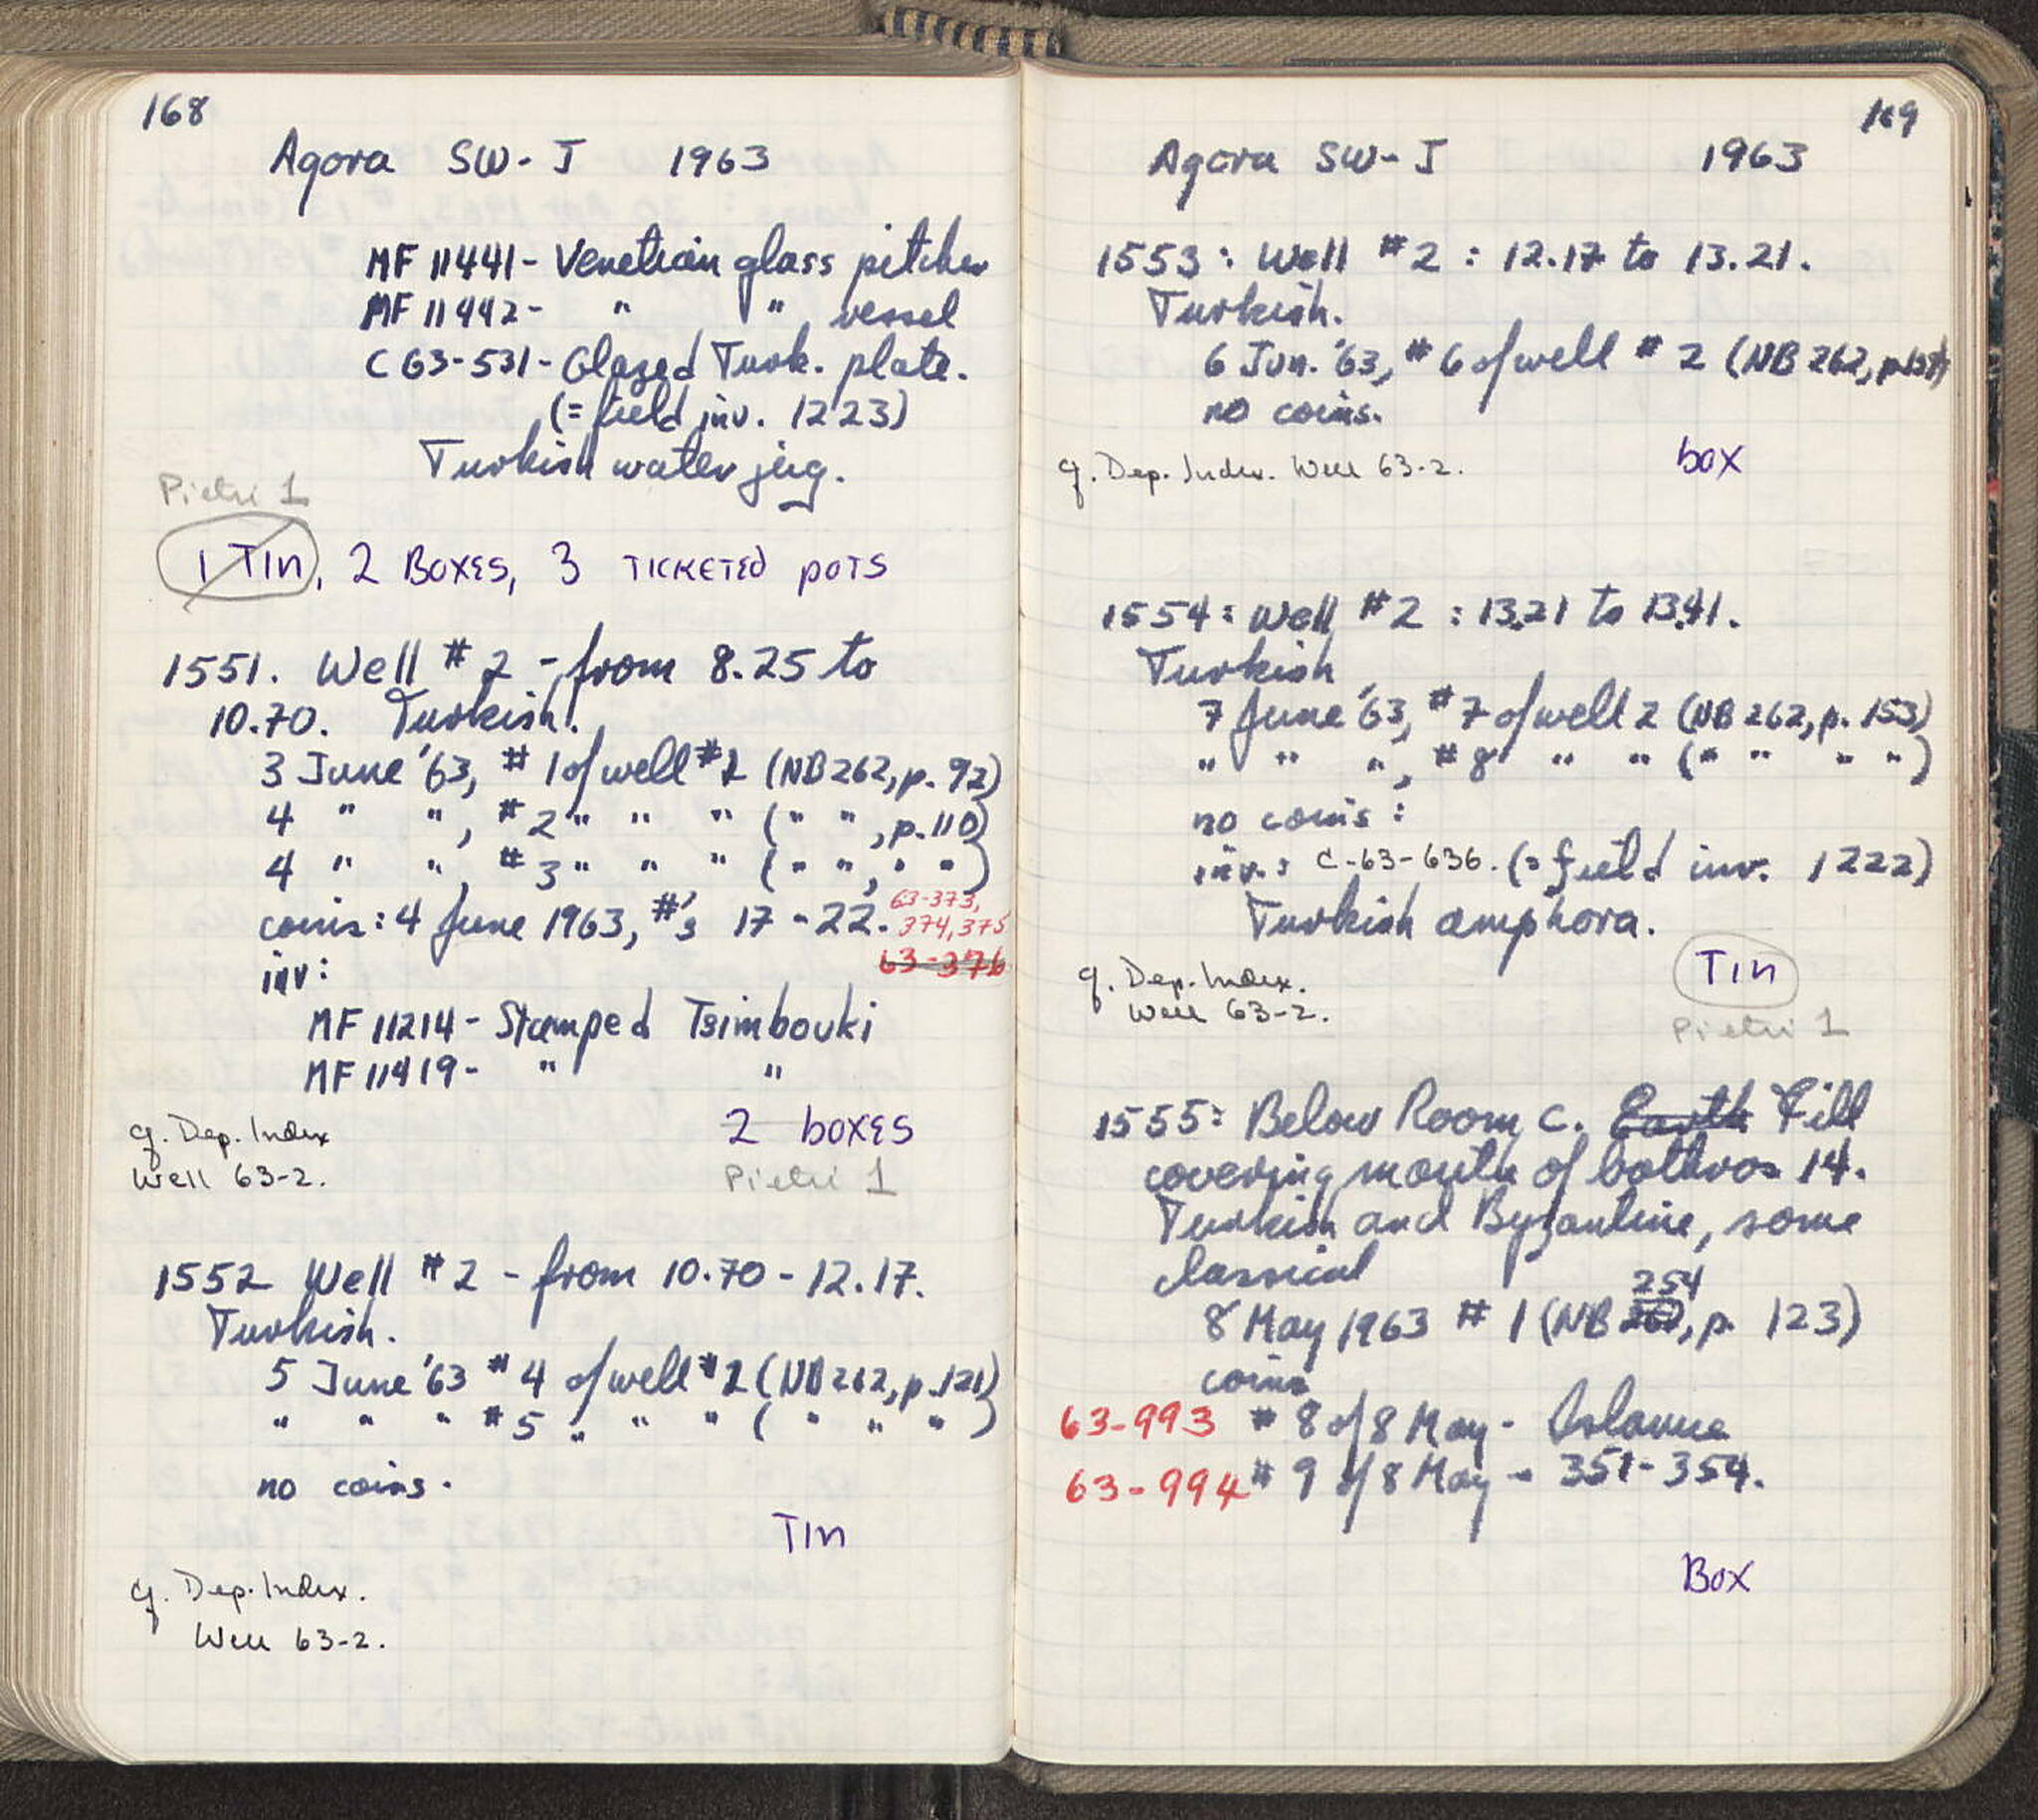 168
Agora SW-J 1963
MF 11441- Venetian glass pitcher
MF 11442- " " vessel
C 63-531- Glazed Turk. plate.
(= field inv. 1223)
Turkish water jug.
Pietri 1
1 Tin, 2 Boxes, 3 TICKETED POTS
1551. Well #2 - from 8.25 to
10.70. Turkish.
3 June '63, #1 of well #2 (NB 262, p. 92)
4 " ", #2 " " " (" ", p. 110)
4 " ", #3 " " " (" ", " ")
coins: 4 June 1963, #'s 17-22. 63-373,
374, 375
63-376
inv:
MF 11214- Stamped Tsimbouki
MF 11419- " "
cf. Dep. Index
Well 63-2.
2 boxes
Pietri 1
1552 Well #2 - from 10.70 - 12.17.
Turkish.
5 June '63 #4 of well #2 (NB 262, p. 121)
" " " #5 " " " ( " " " )
no coins.
Tin
cf. Dep. Index.
Well 63-2.
169
Agora SW-J 1963
1553: Well #2: 12.17 to 13.21.
Turkish.
6 Jun. '63, #6 of well #2 (NB 262,
no coins.
box
cf. Dep. Index. Well 63-2.
1554: Well #2: 13.21 to 13.41.
Turkish
7 June '63, #7 of well 2 (NB 262, p. 153)
" " ", #8 " " (" " " ")
no coins:
inv.: C-63-636. (= field inv. 1222)
Turkish amphora.
Tin
Pietri 1
cf. Dep. Index.
Well 63-2.
1555: Below Room C. Earth Fill
covering mouth of bothros 14.
Turkish and Byzantine, some
classical
254
8 May 1963 #1 (NB 262, p. 123)
coins
63-993 #8 of 8 May - Islamic
63-994 #9 of 8 May - 351-354.
Box